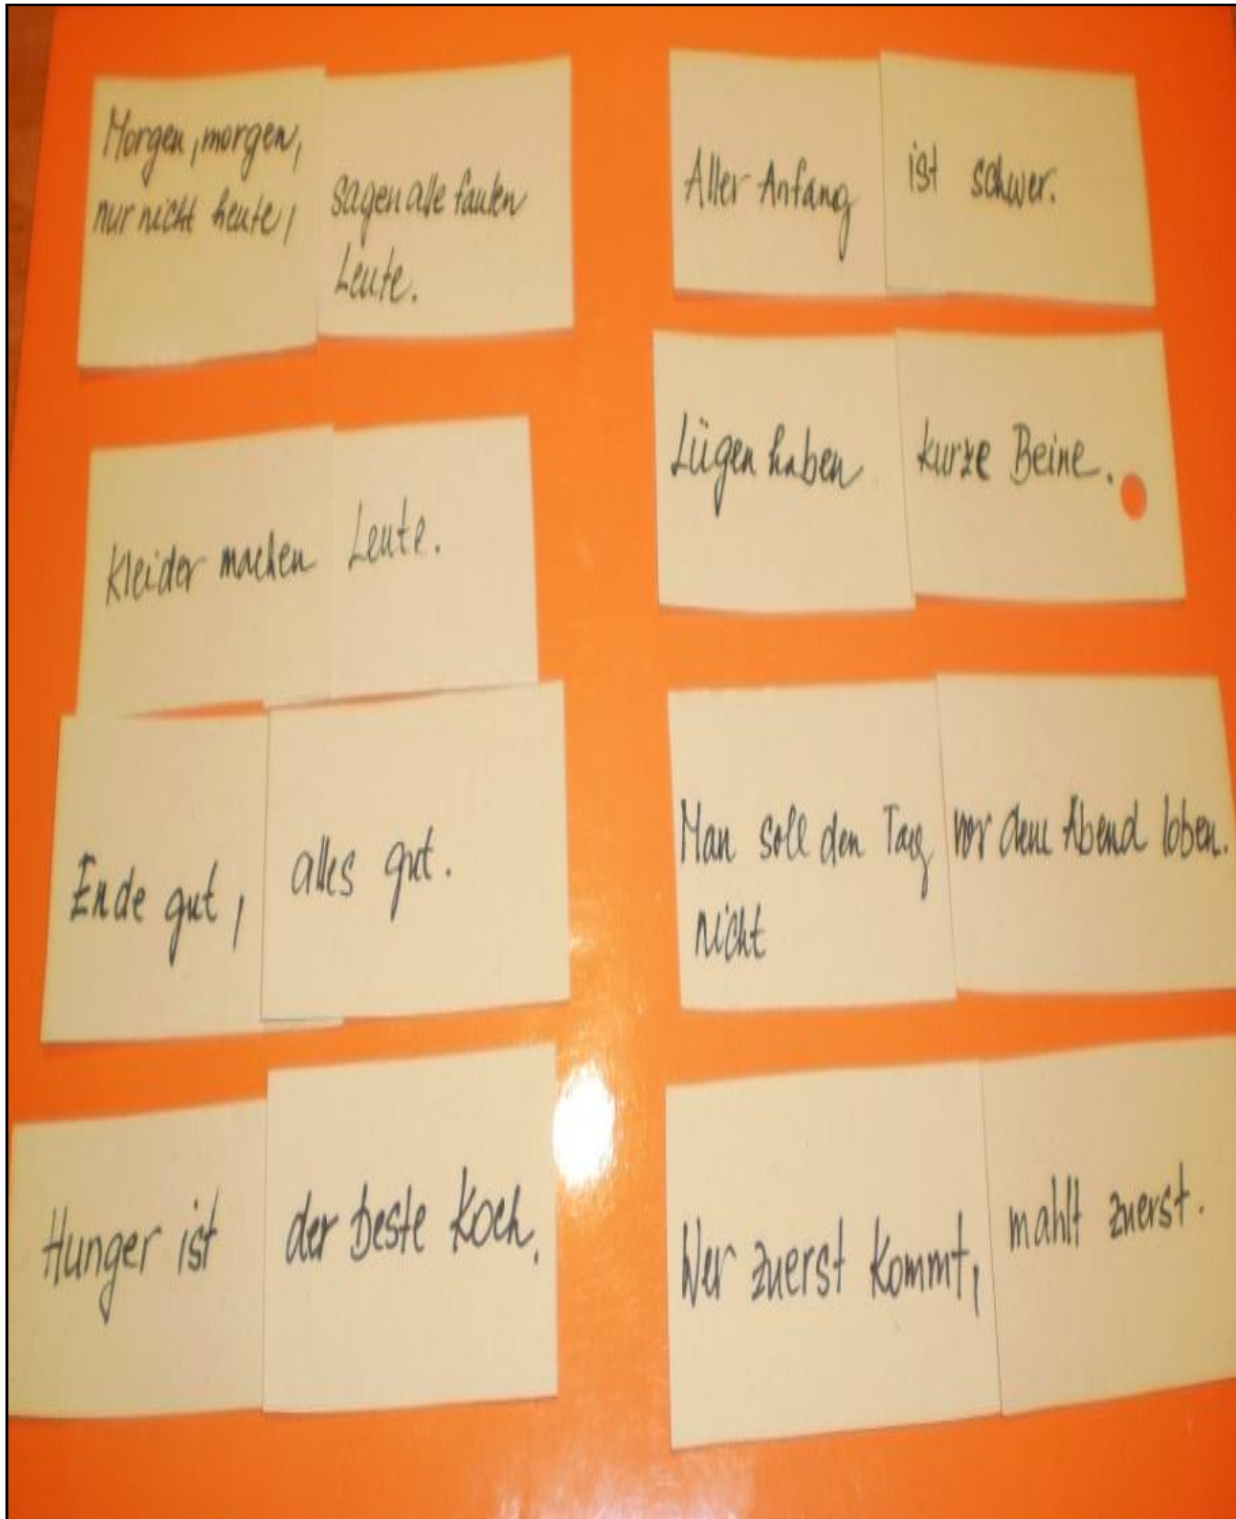 Morgen, morgen,
nur nicht heute,
sagen alle faulen
Leute.
Kleider machen
Leute.
Ende gut,
alles gut.
Hunger ist
der beste Koch.
Aller Anfang
ist schwer.
Lügen haben
kurze Beine.
Man soll den Tag
nicht
vor dem Abend loben.
Wer zuerst kommt,
mahlt zuerst.